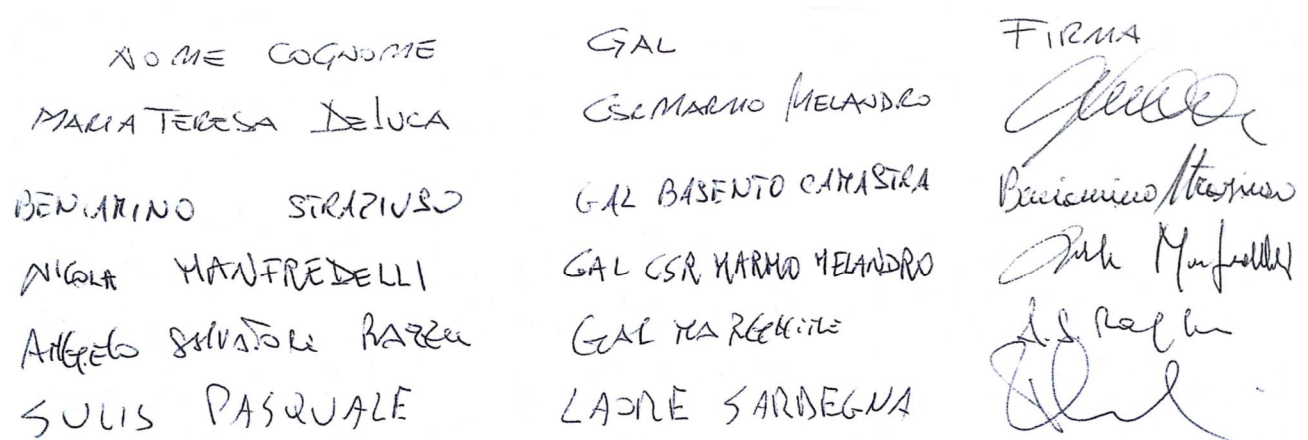 NOME COGNOME GAL FIRMA
MARIA TERESA DELUCA CSR MARMO MELANDRO
BENIAMINO STRAZIUSO GAL BASENTO CAMASTRA Beniamino Straziuso
NICOLA MANFREDELLI GAL CSR MARMO MELANDRO Manfredelli
ANGELO SALVATORE RAZZU GAL MARGHINE A.S. Razzu
SULIS PASQUALE LAORE SARDEGNA